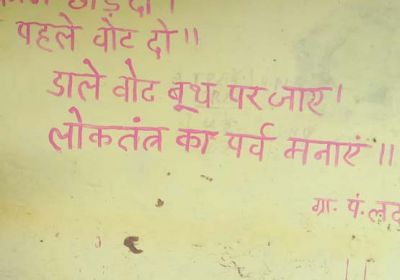 छोड़ दो।
पहले वोट दो॥
डाले वोट बूथ पर जाए।
लोकतंत्र का पर्व मनाएं॥
ग्रा. पं.